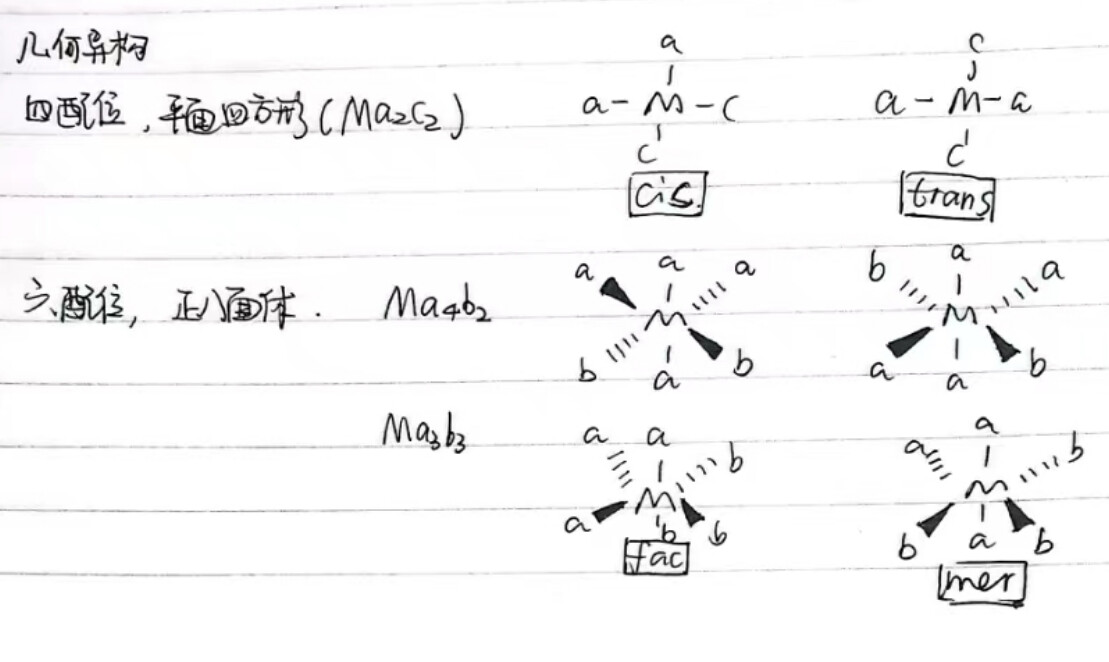 几何异构
a c
四配位，平面四方形(Ma2c2) a-M-c a-M-a
c c
cis. trans
a a a b a a
六配位，正八面体. Ma4b2 M M
b a b a a b
Ma3b3 a a b a a b
M M
a b b b a b
fac mer